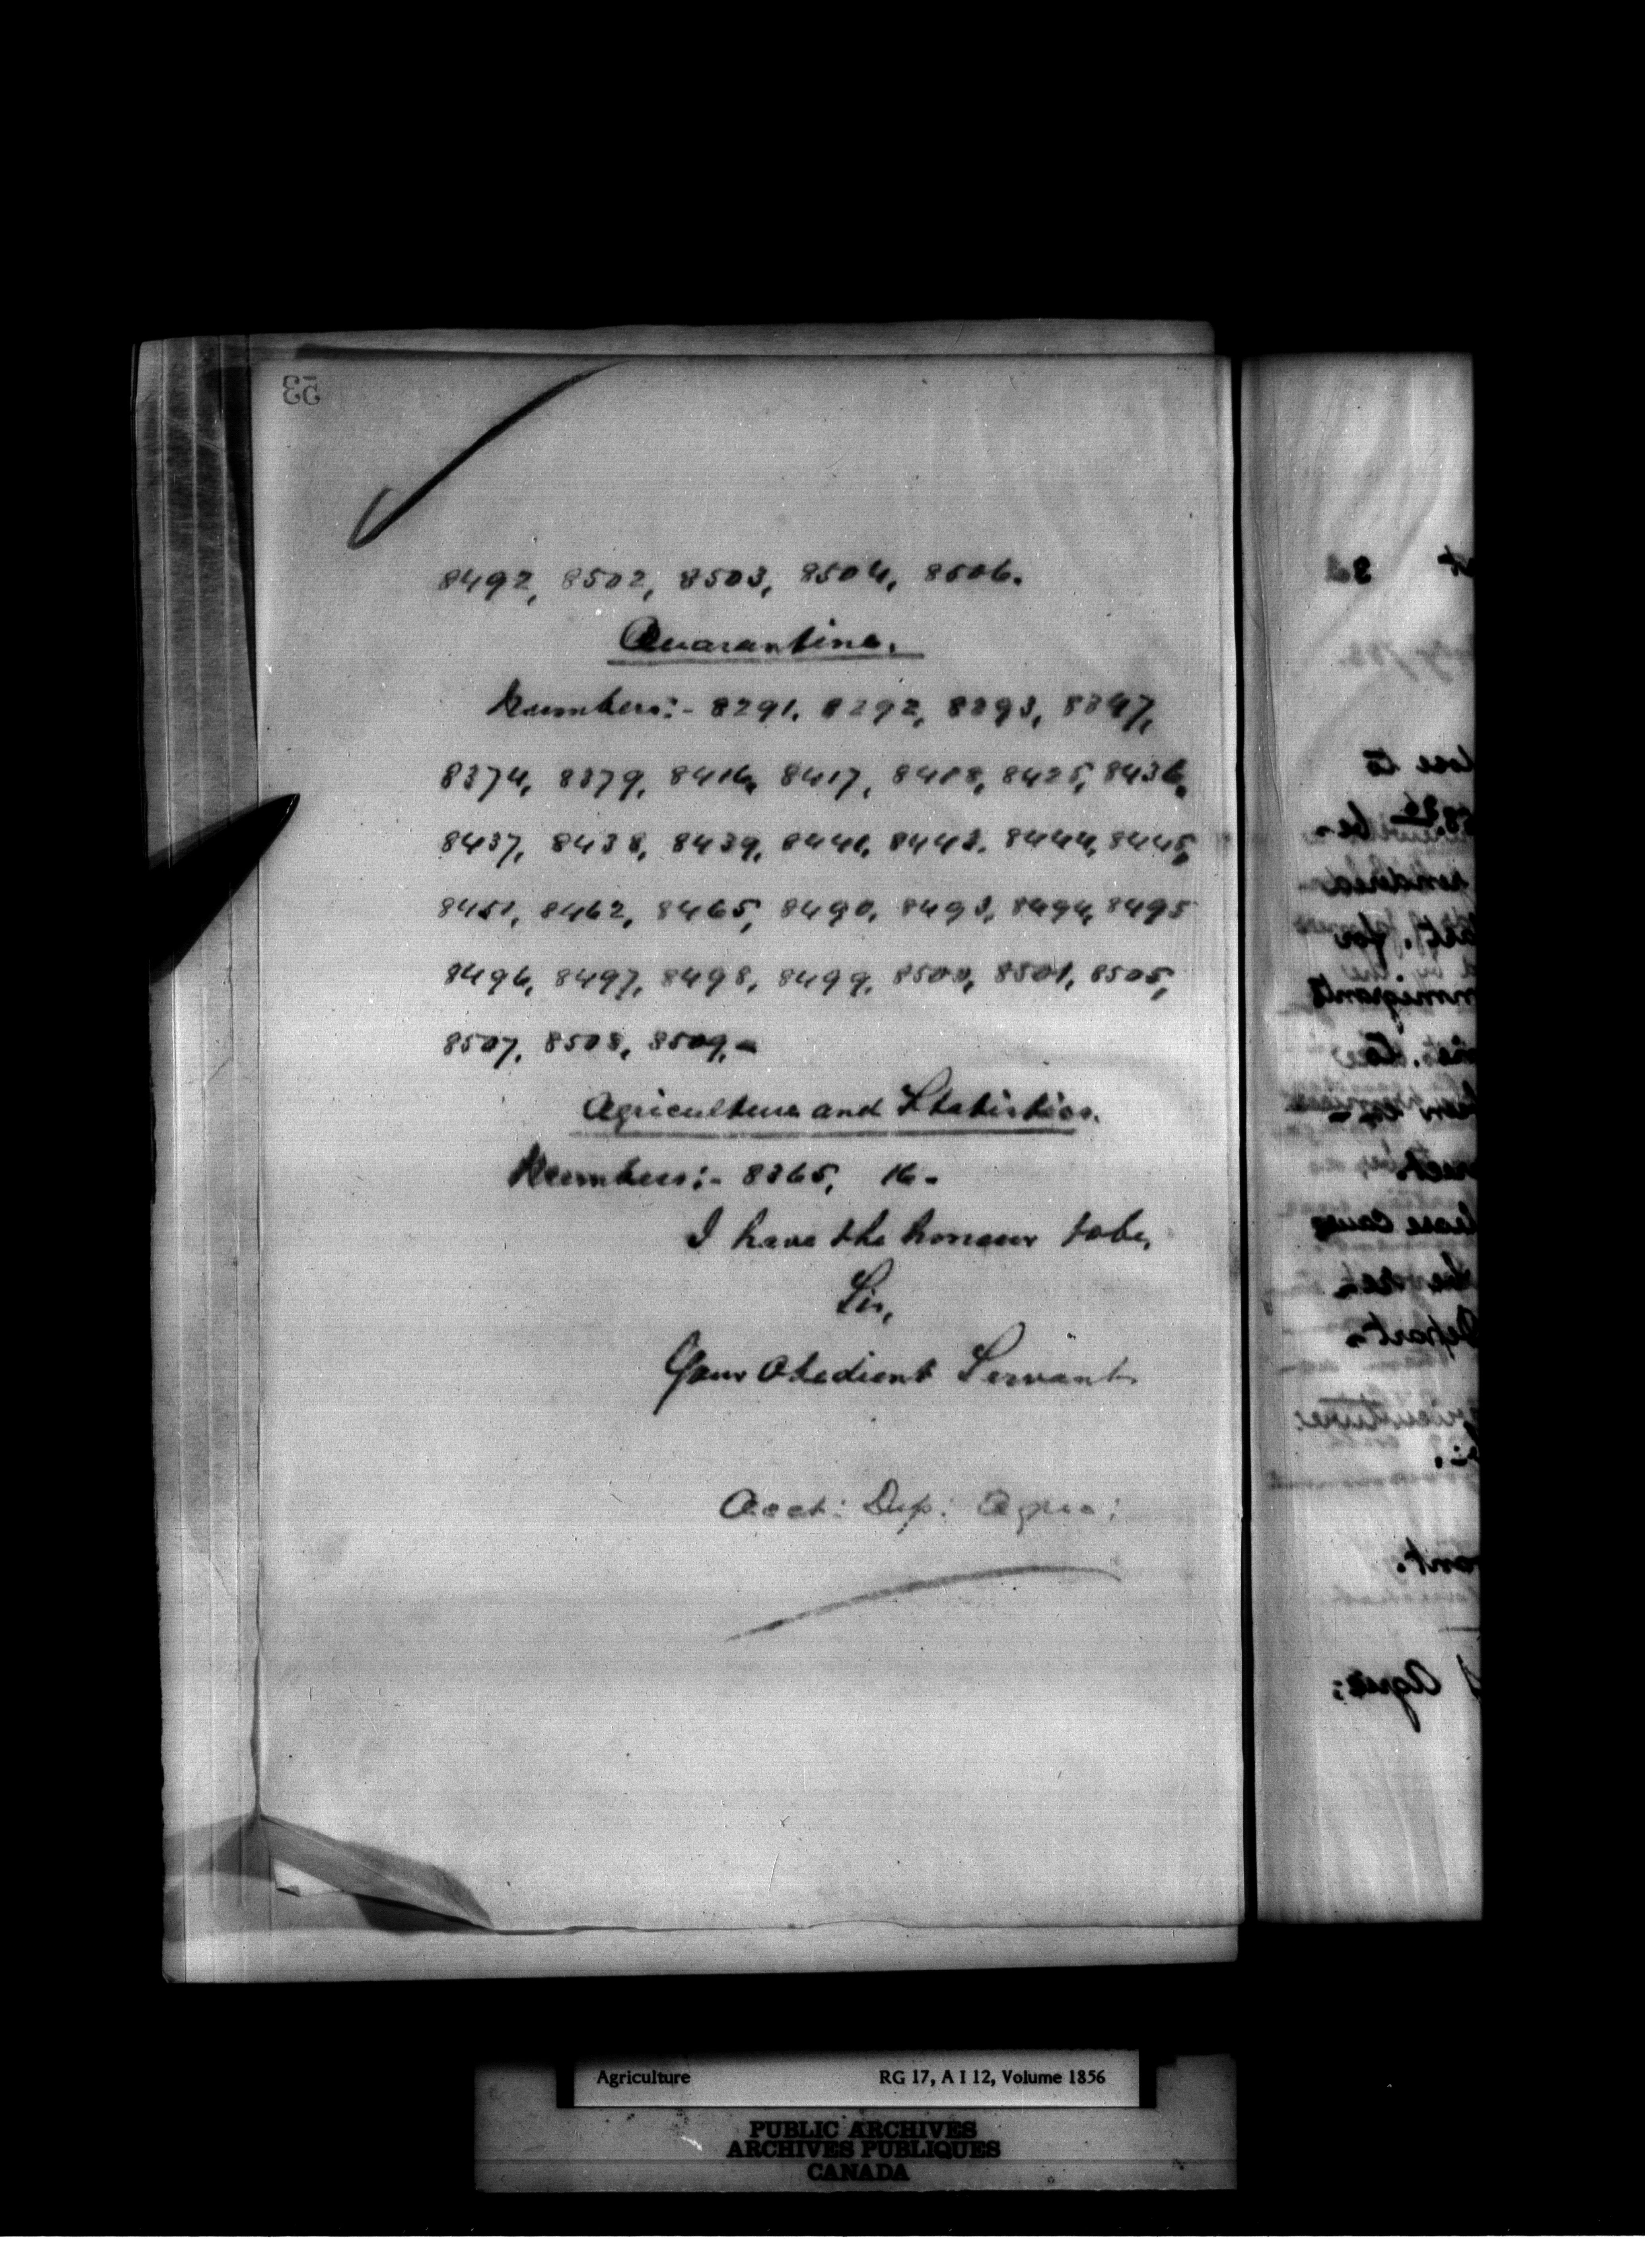 53
8492, 8502, 8503, 8504, 8506.
Quarantine.
Numbers:- 8291, 8292, 8293, 8347,
8374, 8379, 8416, 8417, 8418, 8425, 8436,
8437, 8438, 8439, 8441, 8443, 8444, 8445,
8451, 8462, 8465, 8490, 8493, 8494, 8495
8496, 8497, 8498, 8499, 8500, 8501, 8505,
8507, 8508, 8509,-
Agriculture and Statistics.
Numbers:- 8365, 16-
I have the honour to be,
Sir,
Your Obedient Servant
Acct: Dep: Agric:
Agriculture RG 17, A I 12, Volume 1856
PUBLIC ARCHIVES
ARCHIVES PUBLIQUES
CANADA